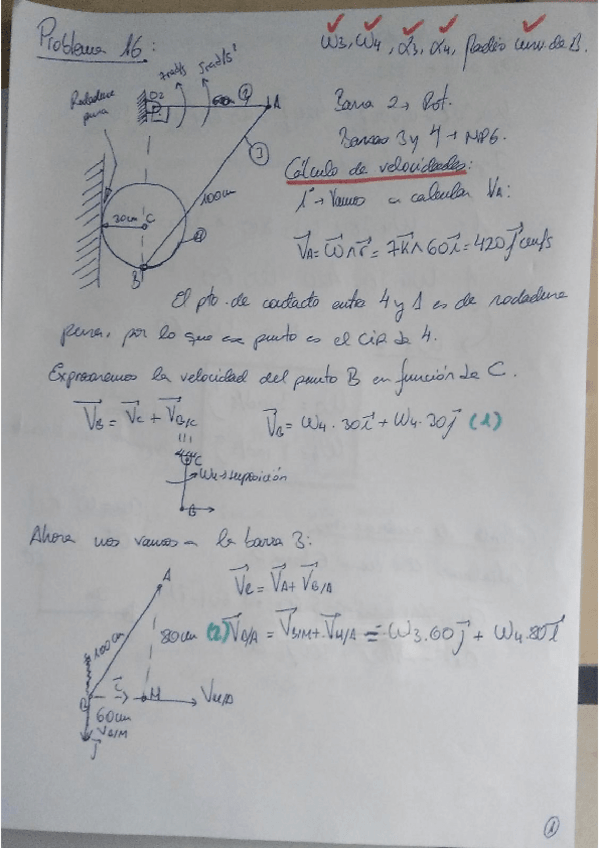 Problema 16:
ω3, ω4, α3, α4, Radio curv. de B.
7rad/s
5rad/s²
O2
60cm
2
A
Rodadura
pura
Barra 2 → Rot.
Barras 3 y 4 → MPG.
3
Cálculo de velocidades:
100cm
1º → Vamos a calcular VA:
30cm
C
4
B
VA = ω∧r = 7k∧60i = 420j cm/s
El pto. de contacto entre 4 y 1 es de rodadura
pura, por lo que ese punto es el CIR de 4.
Expresaremos la velocidad del punto B en función de C.
VB = VC + VB/C
VB = ω4·30i + ω4·30j (1)
C
ω4 → suposición
B
Ahora nos vamos a la barra 3:
A
VB = VA + VB/A
100cm
80cm
(2) VB/A = VB/M + VM/A = -ω3.60j + ω4.80i
B
i
M
VM/A
60cm
VB/M
j
1